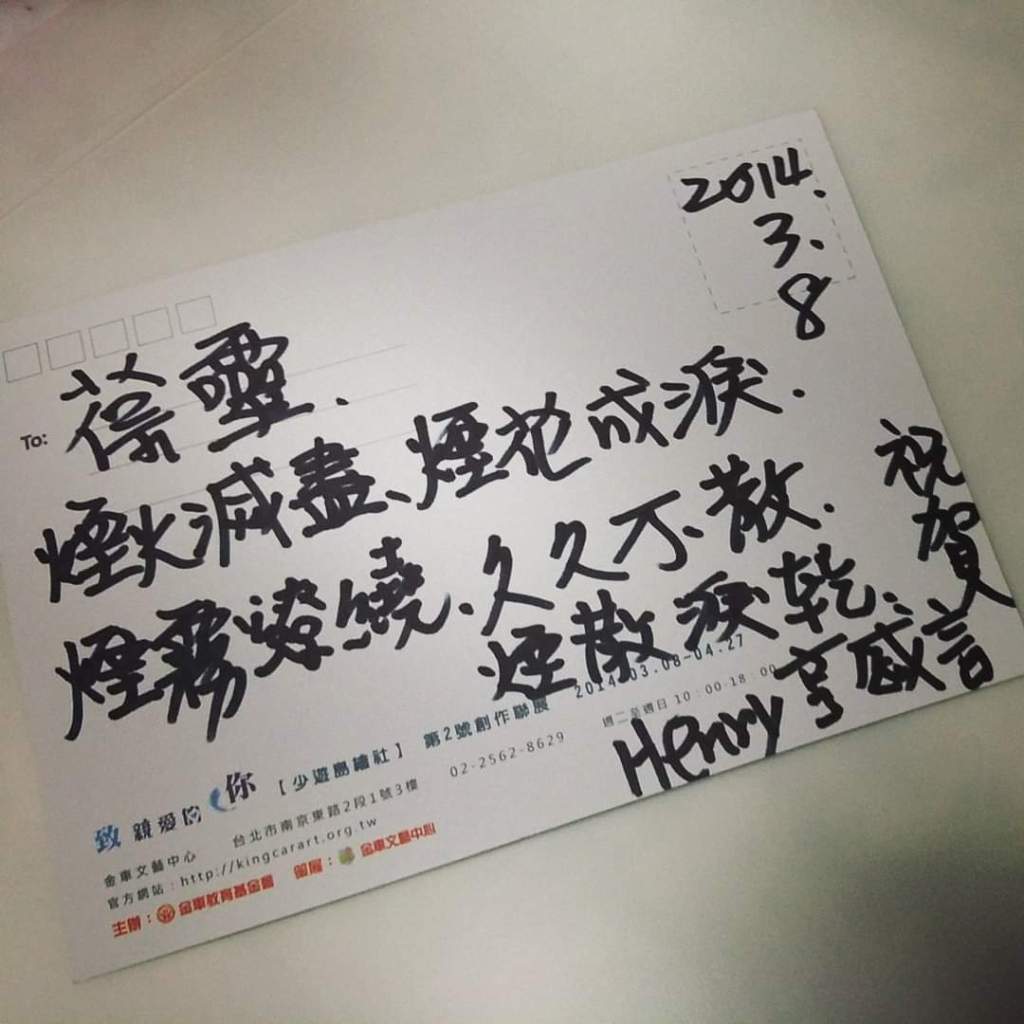 2014.
3.
8
To: 葆靈.
煙火減盡、煙花成淚.
煙霧繚繞.久久不散.
煙散淚乾.
祝賀
Henry 亨感言
致 親愛的你 【少遊島繪社】 第2號創作聯展 2014.03.08-04.27
金車文藝中心 台北市南京東路2段1號3樓 02-2562-8629 週二至週日 10:00-18:00
官方網站:http://kingcarart.org.tw
主辦: 金車教育基金會 策展: 金車文藝中心